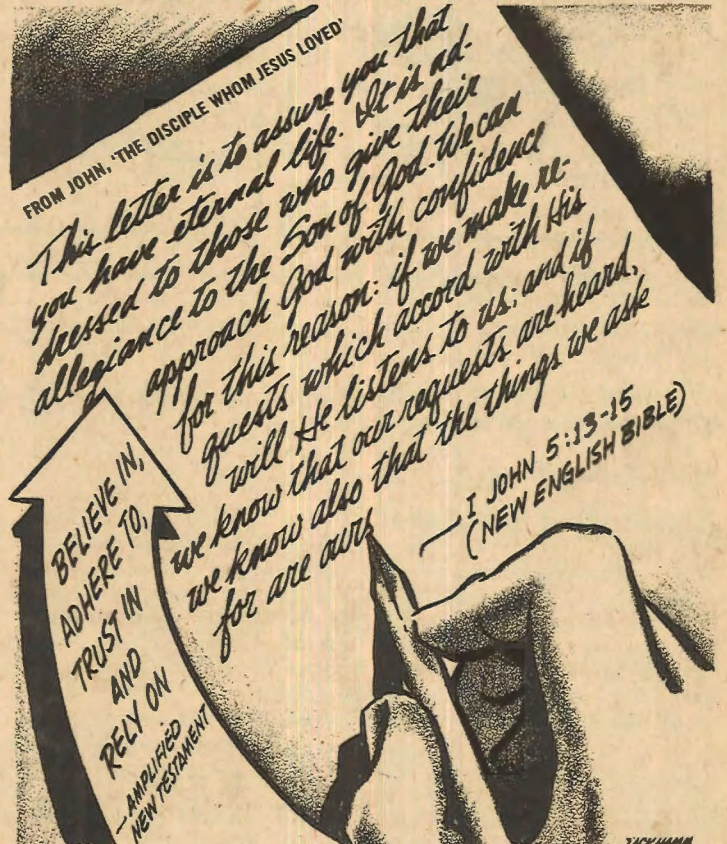 FROM JOHN, 'THE DISCIPLE WHOM JESUS LOVED'
This letter is to assure you that
you have eternal life. It is ad-
dressed to those who give their
allegiance to the Son of God. We can
approach God with confidence
for this reason: if we make re-
quests which accord with His
will He listens to us; and if
we know that our requests are heard,
we know also that the things we ask
for are ours
—I JOHN 5:13-15
(NEW ENGLISH BIBLE)
BELIEVE IN,
ADHERE TO,
TRUST IN
AND
RELY ON
—AMPLIFIED
NEW TESTAMENT